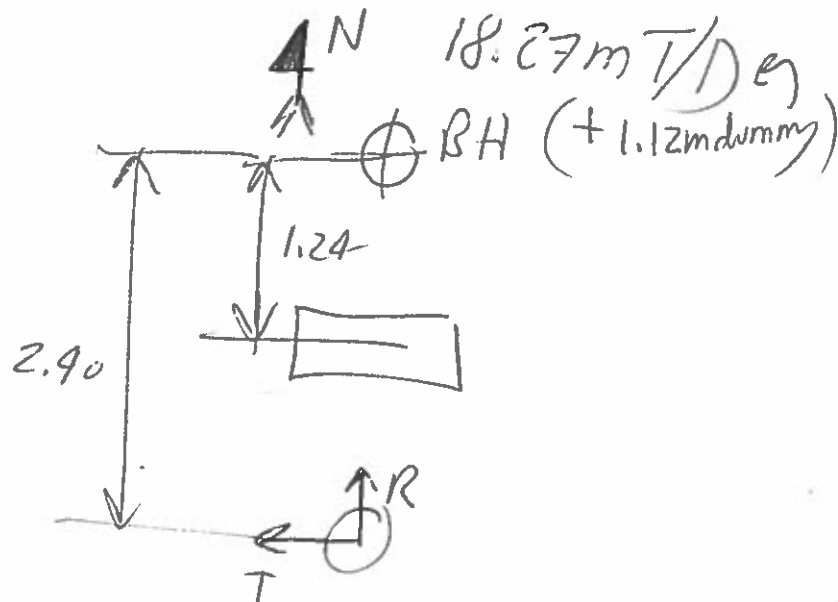 N
18.27m T/D eg
BH (+ 1.12mdummy)
1.24
2.40
R
T